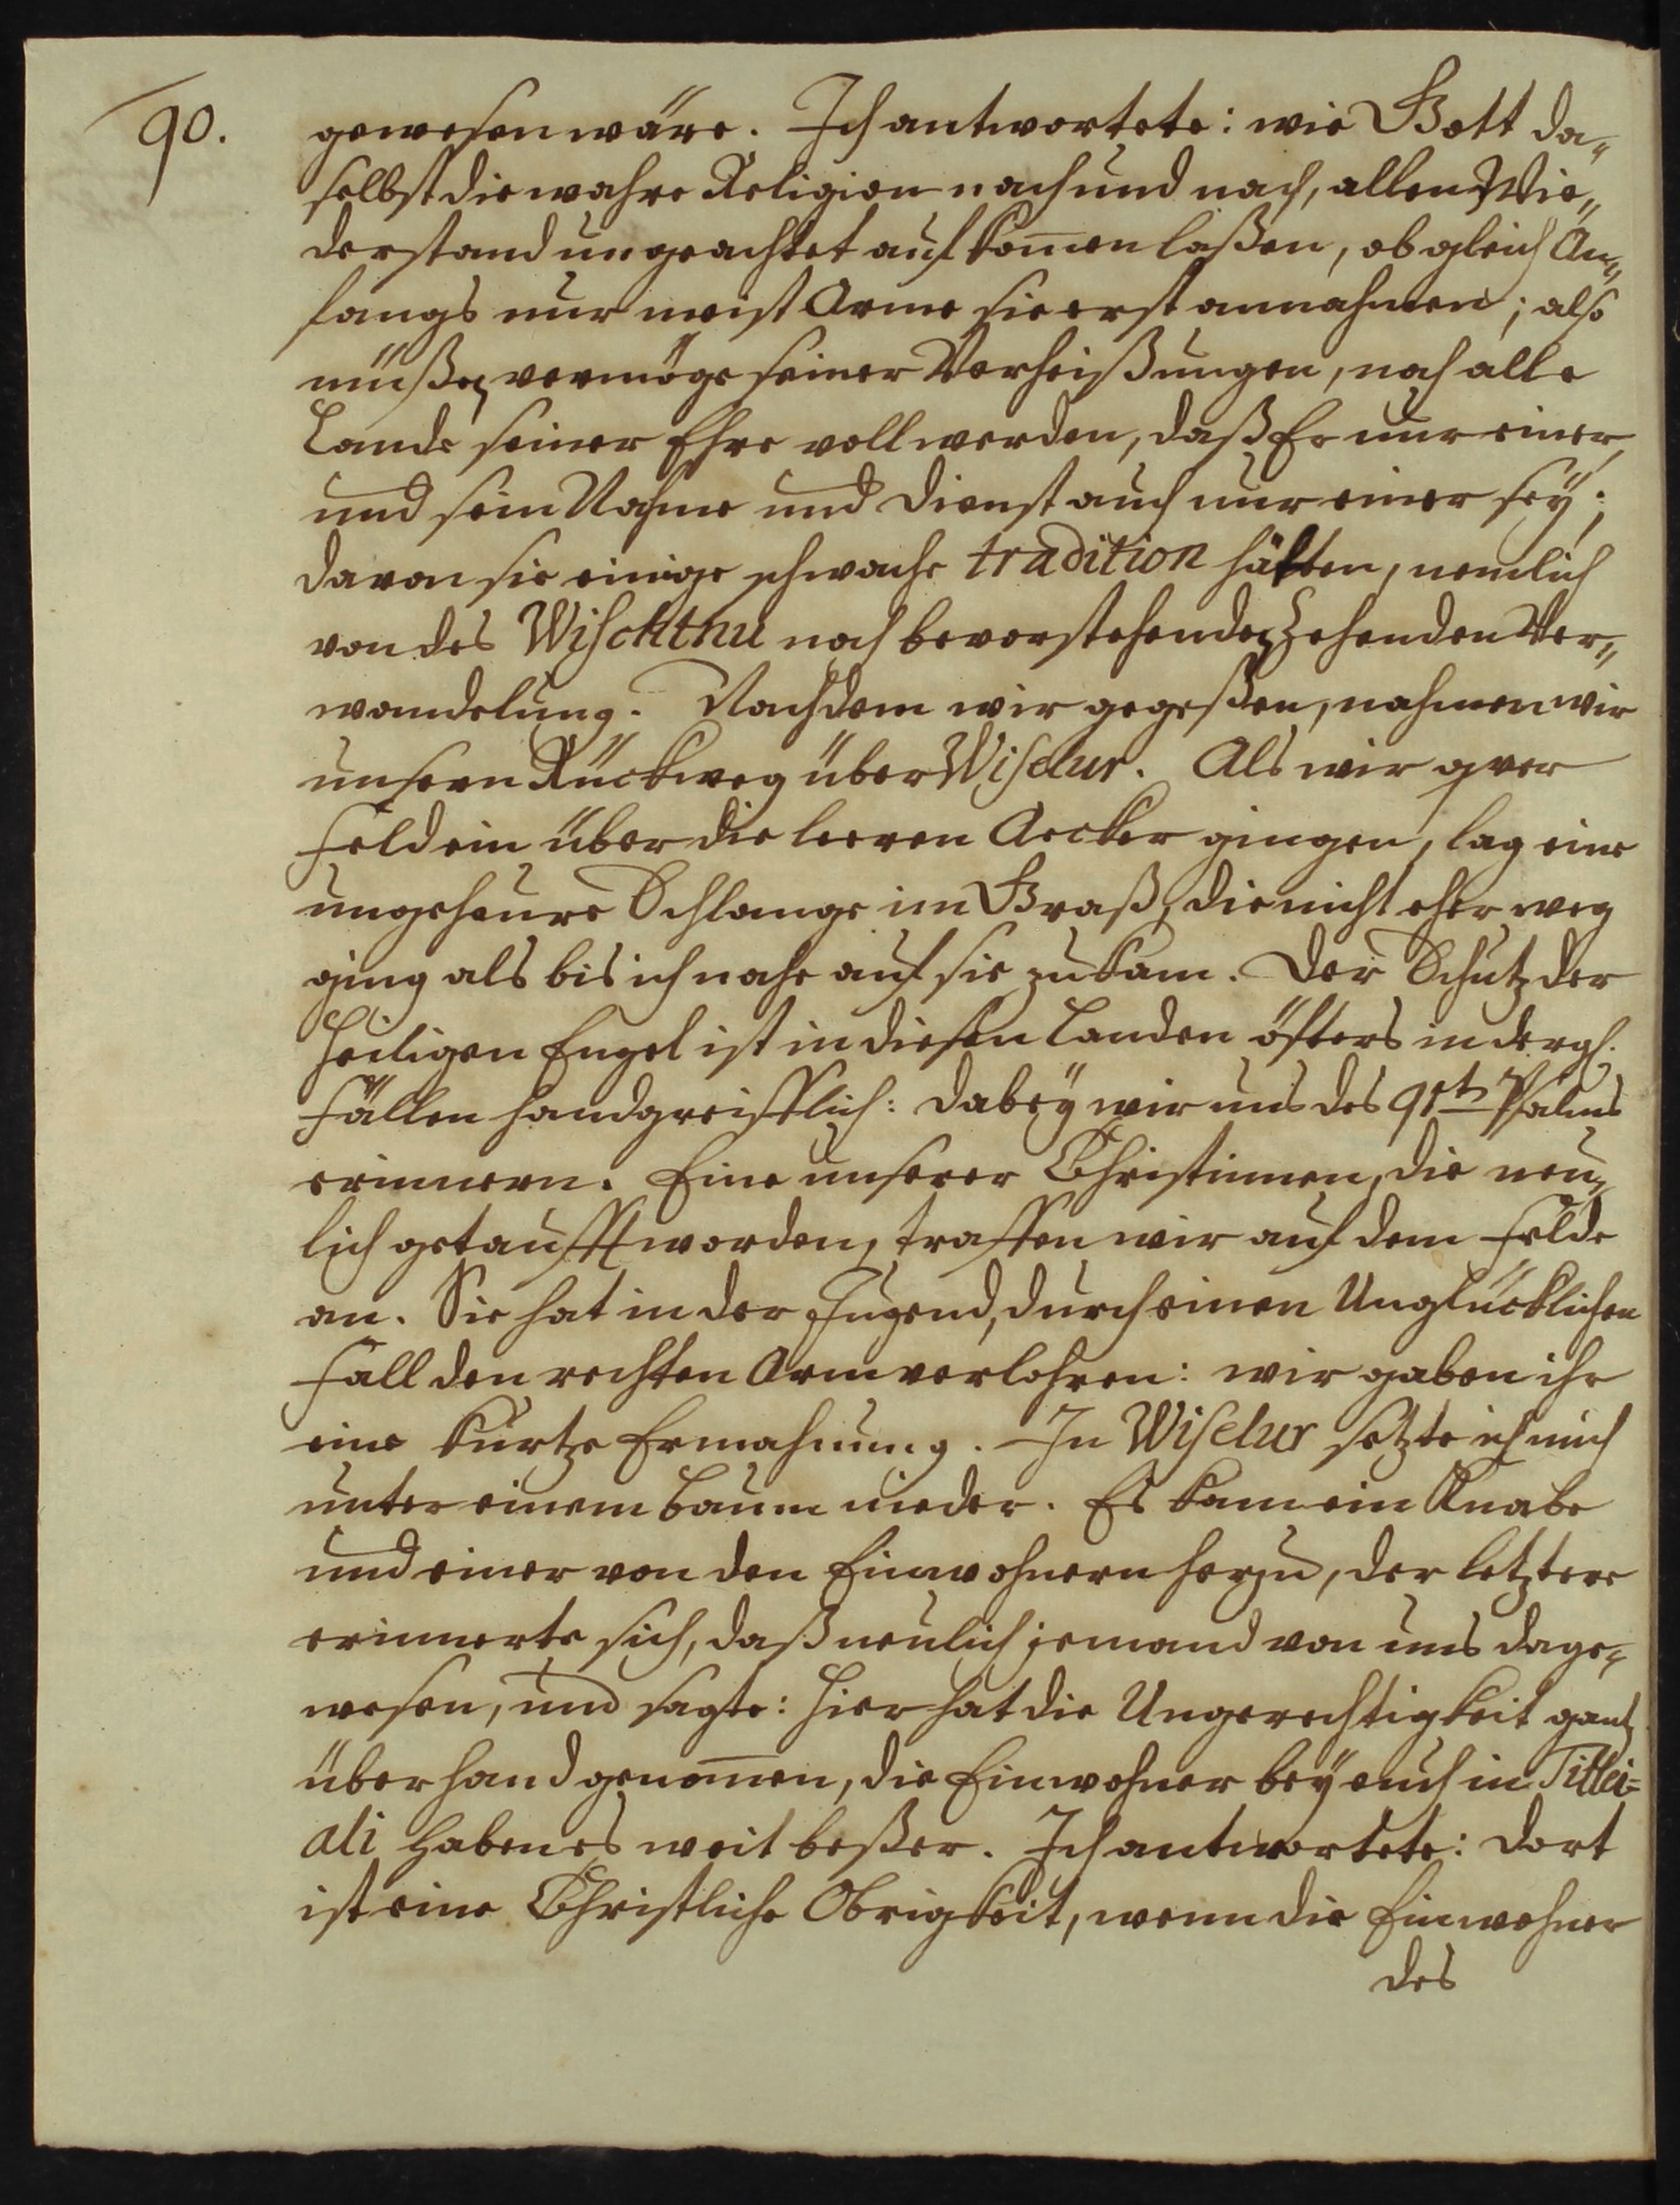 90.
gewesen wäre. Ich antwortete: wie Gott da„
selbst die wahre Religion nach und nach, allen Wie„
derstand ungeachtet aufkom̅en laßen, obgleich An„
fangs nur meist Arme sie erst annahmen; also
müßen vermöge seiner Verheißungen, noch alle
Lande seiner Ehre voll werden, daß Er nur einer,
und sein Nahme und Dienst auch nur einer sey;
davon sie einige schwache tradition hätten, nemlich
von des Wischthu noch bevorstehenden Zehenden Ver„
wandelung. Nachdem wir gegeßen, nahmen wir
unsern Rückweg über Wiselur. Als wir quer
Feld ein über die leeren Aecker gingen, lag eine
ungeheure Schlange im Graß, die nicht eher weg
ging als bis ich nahe auf sie zukam. Der Schutz der
Heiligen Engel ist in diesen Landen öfters in dergl.
Fällen handgreifflich: dabey wir uns des 91t Psalms
erinnern. Eine unserer Christinnen, die neu„
lich getaufft worden, traffen wir auf dem Felde
an. Sie hat in der Jugend, durch einen Unglücklichen
Fall den rechten Arm verlohren: wir gaben ihr
eine kurtze Ermahnung. In Wiselur setzte ich mich
unter einem Baum nieder. Es kam ein Knabe
und einer von den Einwohnern herzu, der letztere
erinnerte sich, daß neulich jemand von uns dage„
wesen, und sagte: hier hat die Ungerechtigkeit gantz
überhand genom̅en, die Einwohner bey euch in Tillei=
ali haben es weit beßer. Ich antwortete: dort
ist eine Christliche Obrigkeit, wenn die Einwohner
des